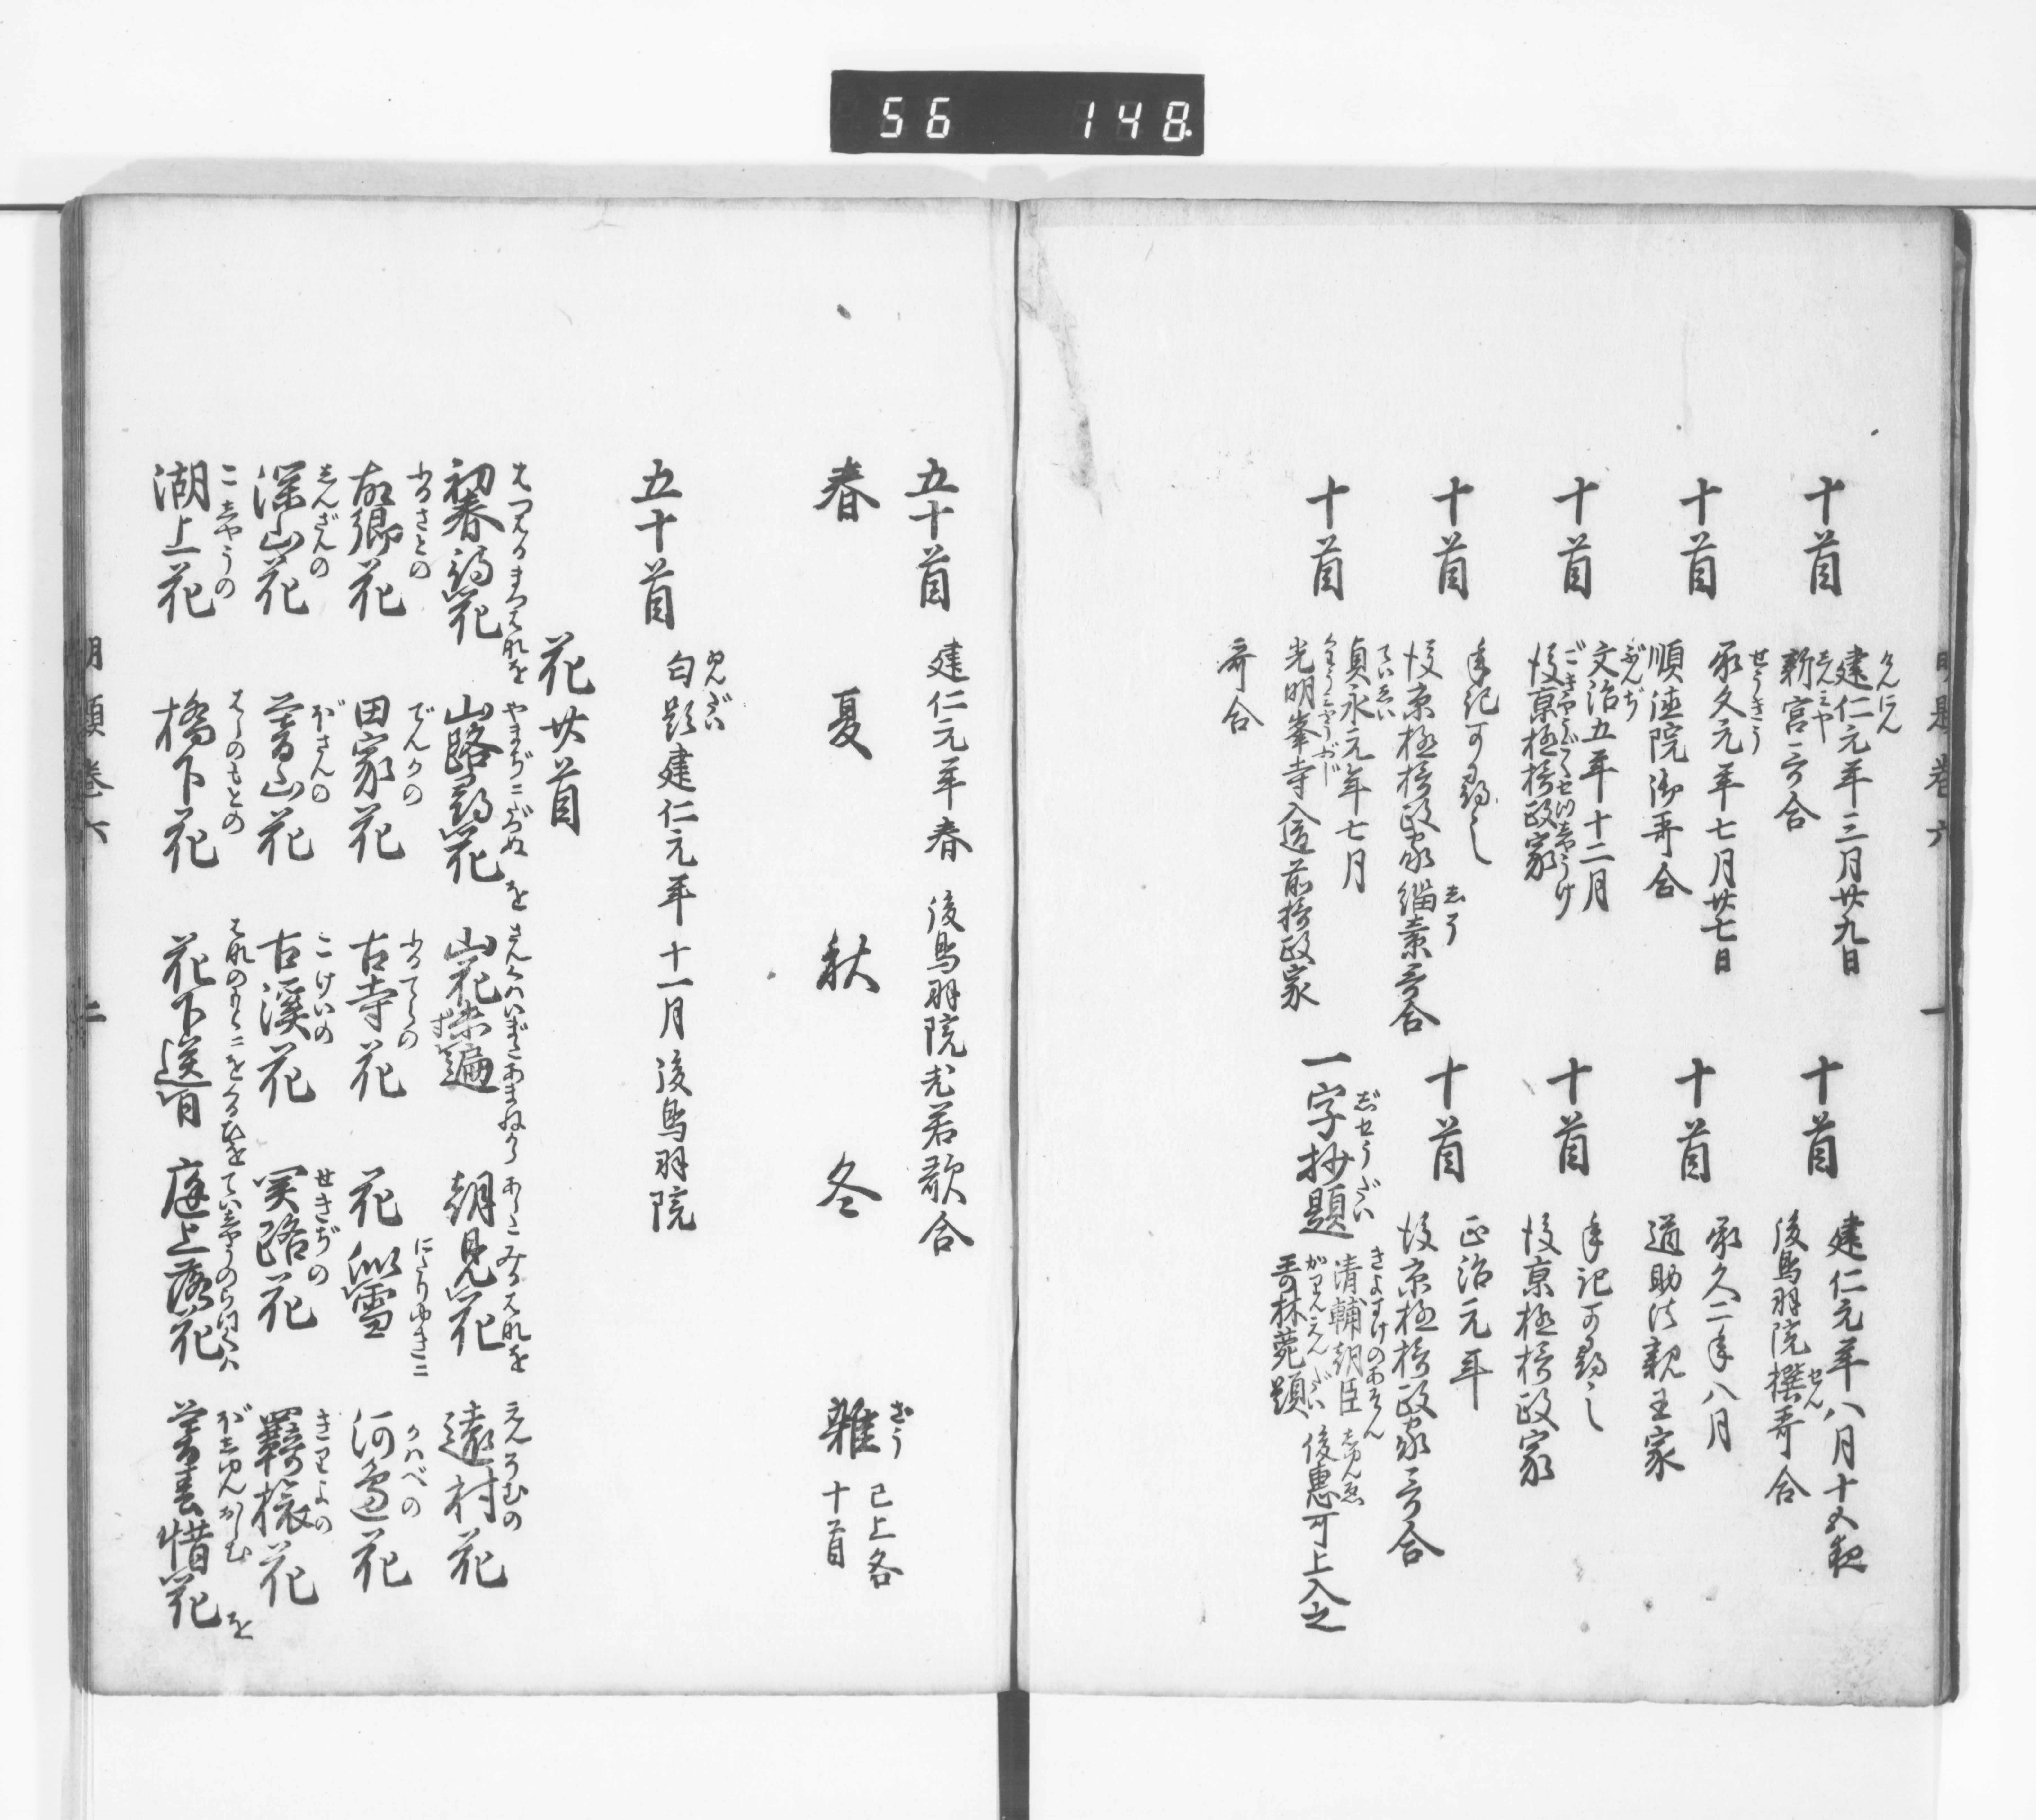 56 148
明題巻六 一
十首 建仁元年三月廿九日
新宮哥合
十首 承久元年七月廿七日
順徳院御哥合
十首 文治五年十二月
後京極摂政家
十首 年記可尋之
後京極摂政家緇素哥合
十首 貞永元年七月
光明峯寺入道前摂政家
哥合
十首 建仁元年八月十五夜
後鳥羽院撰哥合
十首 承久二年八月
道助法親王家
十首 年記可尋之
後京極摂政家
十首 正治元年
後京極摂政家哥合
一字抄題 清輔朝臣
哥林菀題 俊恵可上入之
五十首 建仁元年春 後鳥羽院老若歌合
春 夏 秋 冬 雑 已上各十首
五十首 勾題 建仁元年十一月 後鳥羽院
花廿首
初春尋花 山路尋花 山花未遍 朝見花 遠村花
故郷花 田家花 古寺花 花似雪 河邊花
深山花 暮山花 古溪花 関路花 羇旅花
湖上花 橋下花 花下送日 庭上落花 暮春惜花
明題巻六 二